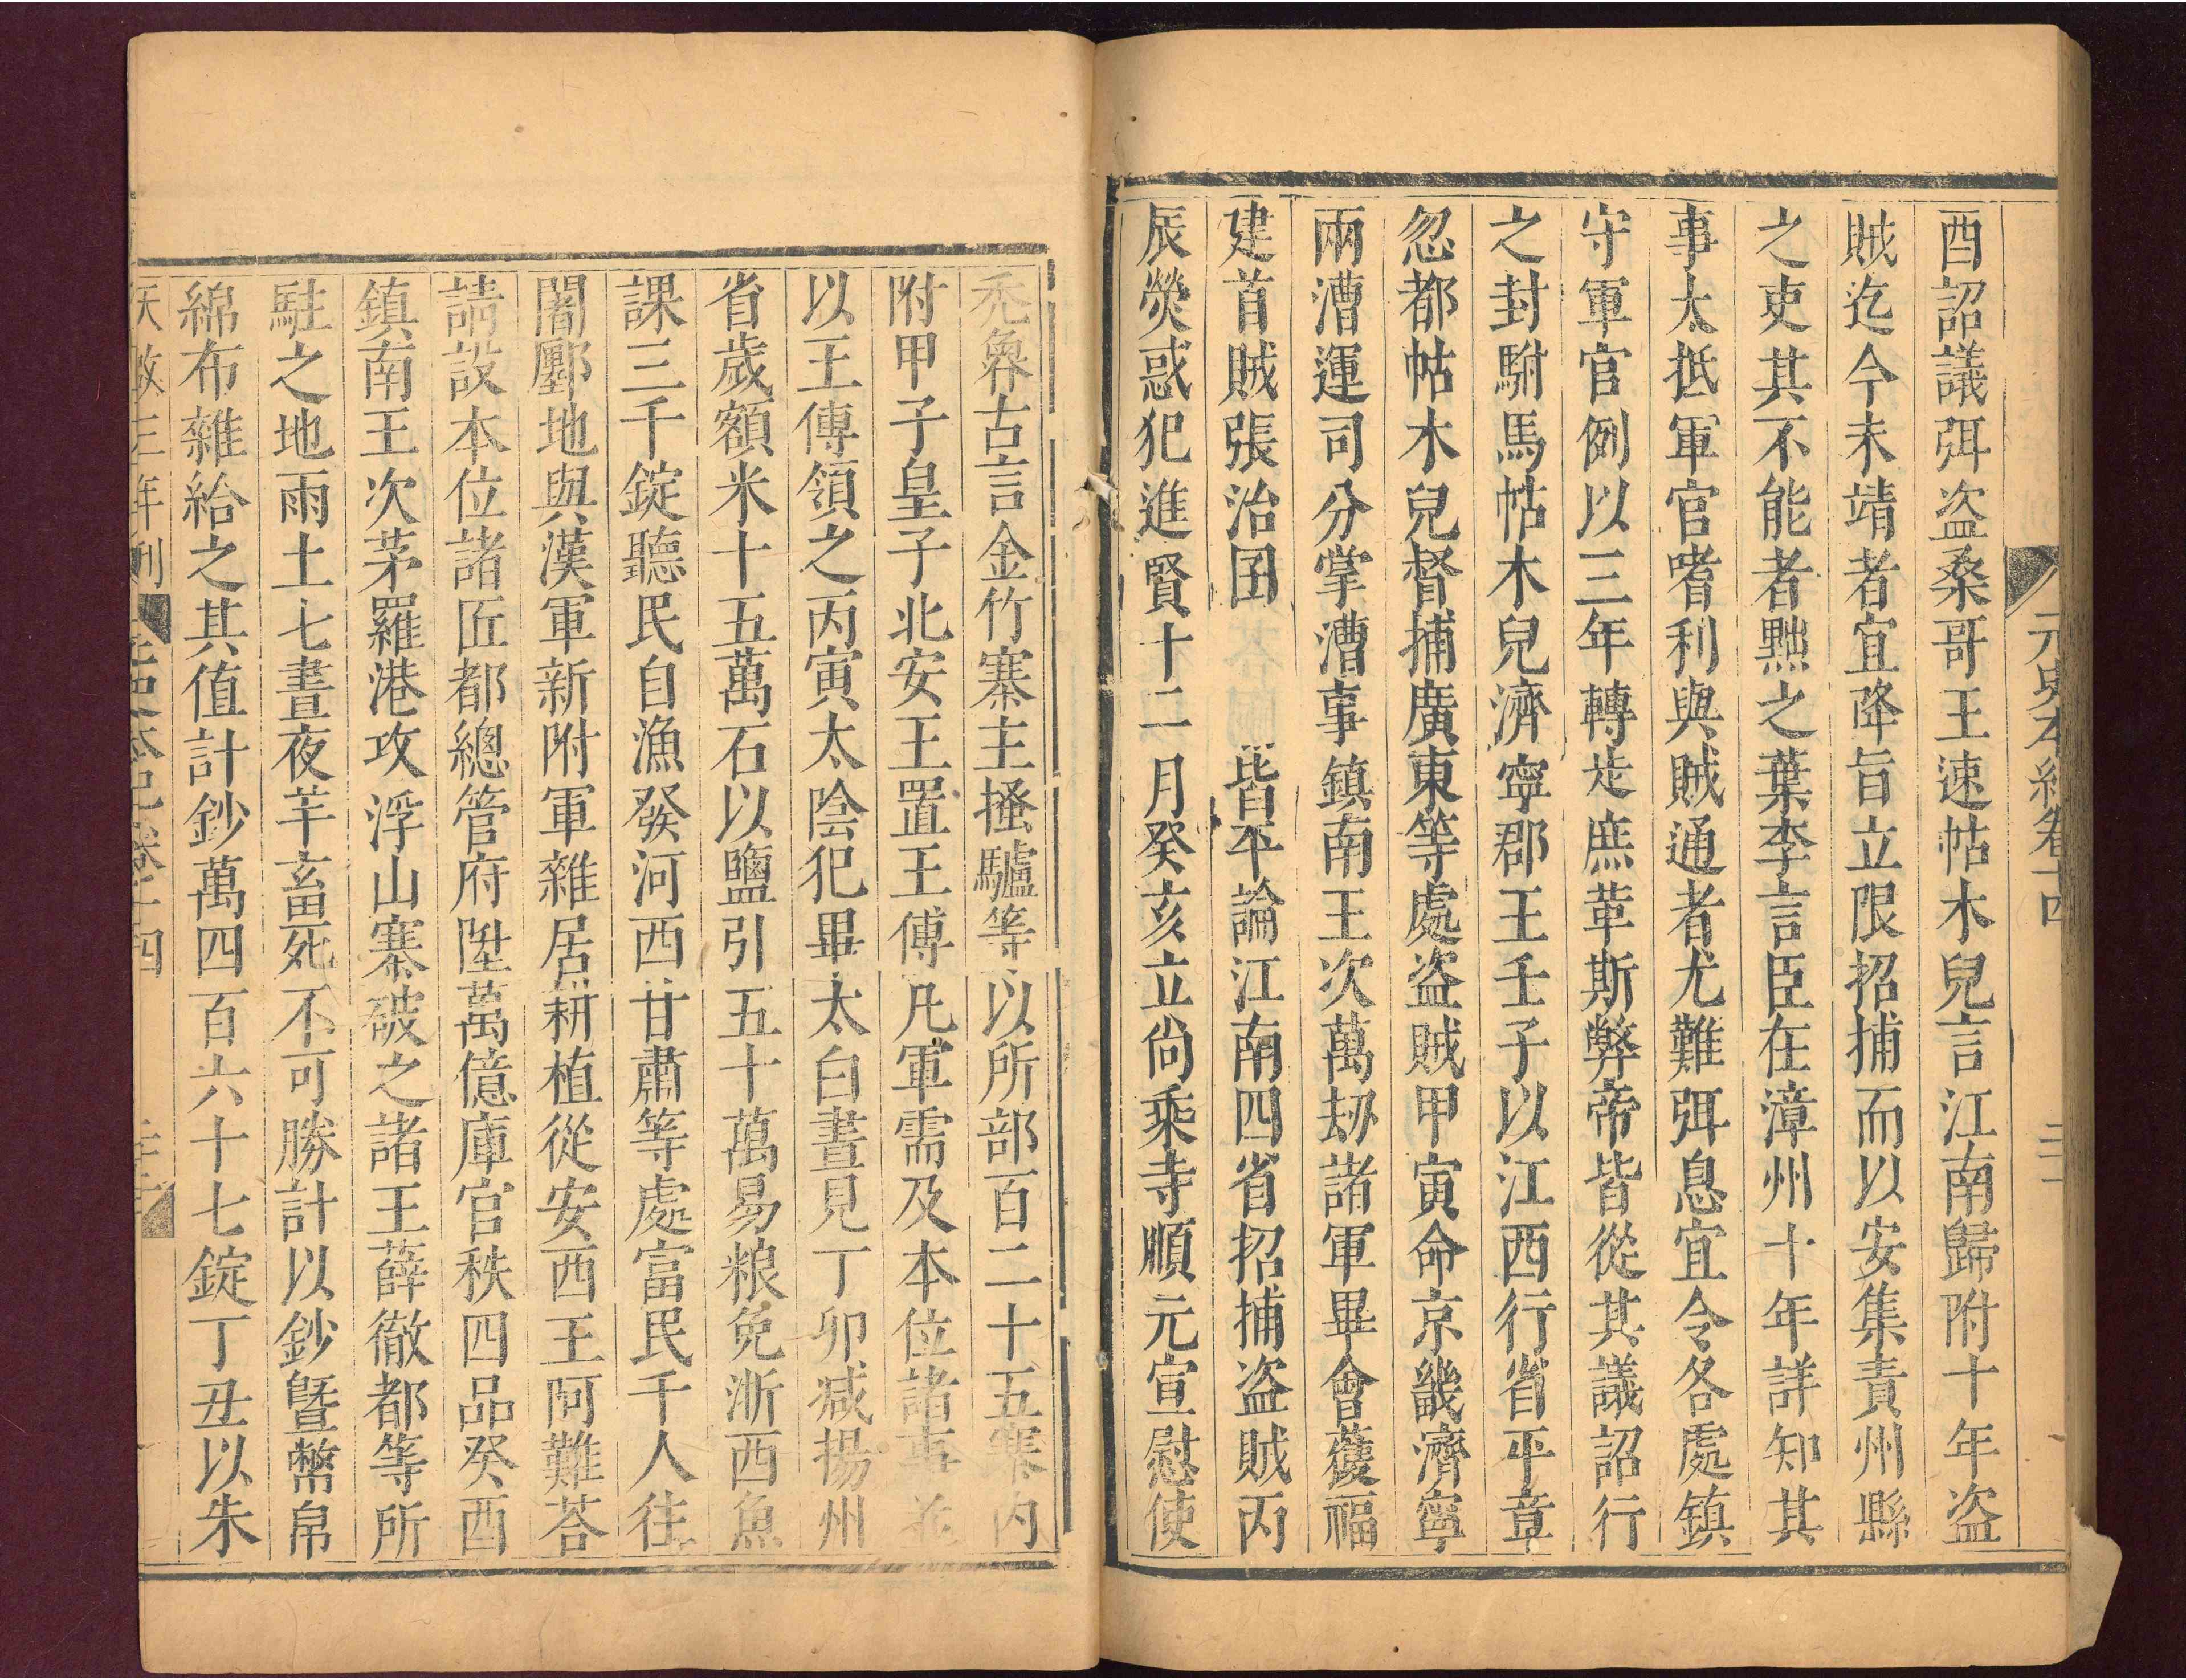 元史本紀卷十四
酉詔議弭盗桑哥王速帖木兒言江南歸附十年盗
賊迄今未靖者宜降旨立限招捕而以安集責州縣
之吏其不能者黜之葉李言臣在漳州十年詳知其
事太抵軍官嗜利與賊通者尤難弭息宜令各處鎮
守軍官例以三年轉走庶革斯弊帝皆從其議詔行
之封駙馬帖木兒濟寧郡王壬子以江西行省平章
忽都帖木兒督捕廣東等處盗賊甲寅命京畿濟寧
兩漕運司分掌漕事鎮南王次萬刼諸軍畢會獲福
建首賊張治囝 皆平論江南四省招捕盗賊丙
辰熒惑犯進賢十二月癸亥立尙乘寺順元宣慰使
禿魯古言金竹寨主搔驢等以所部百二十五寨内
附甲子皇子北安王置王傅凡軍需及本位諸事並
以王傅領之丙寅太陰犯畢太白晝見丁卯减揚州
省歲額米十五萬石以鹽引五十萬易粮免浙西魚
課三千錠聽民自漁發河西甘肅等處富民千人往
闍鄽地與漢軍新附軍雜居耕植從安西王阿難荅
請設本位諸匠都總管府陞萬億庫官秩四品癸酉
鎮南王次茅羅港攻浮山寨破之諸王薛徹都等所
駐之地雨土七晝夜羊畜死不可勝計以鈔曁幣帛
綿布雜給之其值計鈔萬四百六十七錠丁丑以朱